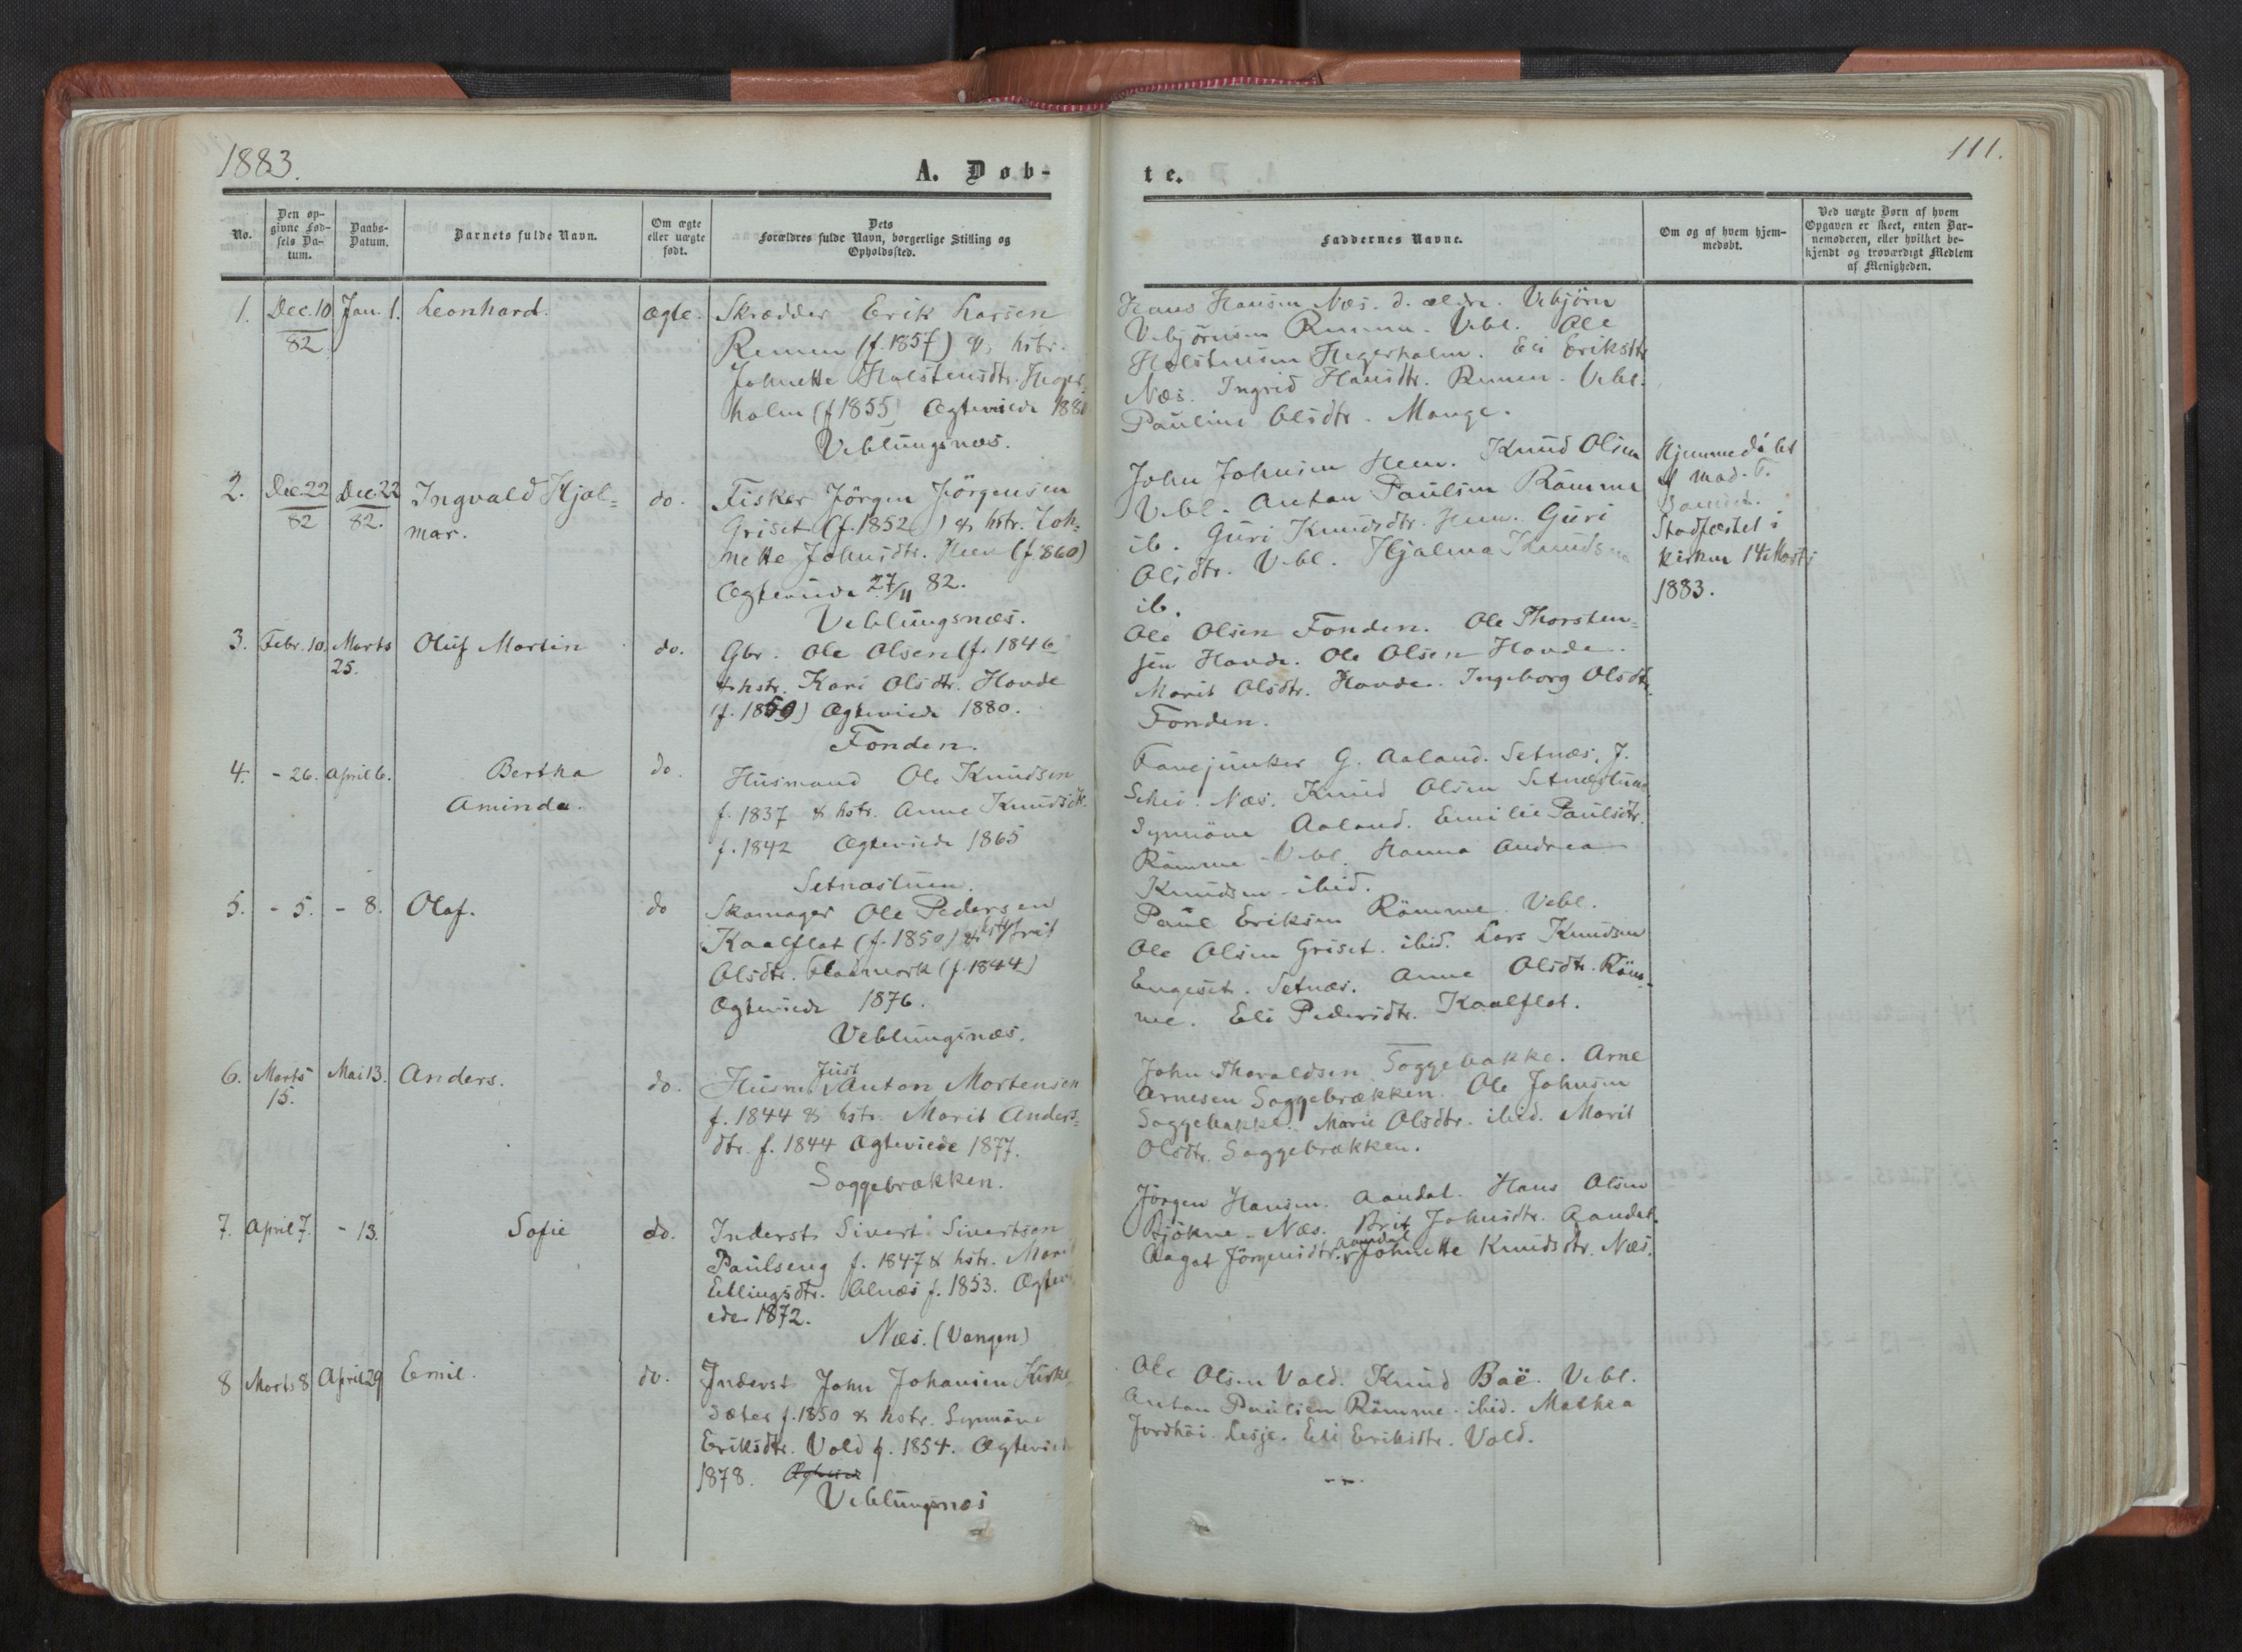 1883.
A. Døb-
te.
111.
No.
Den op-
givne Fød-
sels Da-
tum.
Daabs-
Datum.
Barnets fulde Navn.
Om ægte
eller uægte
født.
Dets
Forældres fulde Navn, borgerlige Stilling og
Opholdssted.
Faddernes Navne.
Om og af hvem hjem-
medøbt.
Ved uægte Børn af hvem
Opgaven er skeet, enten Bar-
nemoderen, eller hvilket be-
kjendt og troværdigt Medlem
af Menigheden.
1. Dec. 10 82 Jan. 1. Leonhard. ægte.
Skrædder Erik Larsen
Remen (f. 1857) & hstr.
Johnette Halstensdtr. Heger-
holm (f 1855) Ægteviede 188
Veblungsnæs.
Hans Hansen Næs. d. ældre. Vebjörn
Vebjörnsen Remmen. Vebl. Ole
Halstensen Hegerholm. Eli Eriksdtr
Næs. Ingrid Hansdtr. Remen. Vebl.
Pauline Olsdtr. Mange.
2. Dec. 22 82 Dec. 22 82. Ingvald Hjal=
mar.
do.
Fisker Jörgen Jörgensen
Griset (f. 1852) & hstr. Joh=
nette Johnsdtr. Heen (f 860)
Ægteviede 27/11 82.
Veblungsnæs.
John Johnsen Heen. Knud Olsen
Vebl. Anton Paulsen Römme
ib. Guri Knudsdtr. Heen. Guri
Olsdtr. Vebl. Hjalma Knudsen
ib.
Hjemmedöbt
af Mad. T.
Stadfæstet i
kirken 14 Marts
1883.
3. Febr. 10. Marts
25.
Oluf Martin do.
Gbr. Ole Olsen (f. 1846
& hstr. Kari Olsdtr. Hovde
(f. 1850) Ægteviede 1880.
Fonden.
Ole Olsen Fonden. Ole Thorsten=
sen Hovde. Ole Olsen Hovde.
Marit Olsdtr. Hovde. Ingeborg Olsdtr.
Fonden.
4. - 26. April 6. Bertha
Aminda.
do.
Husmand Ole Knudsen
f. 1837 & hstr. Anne Knudsdtr.
f. 1842 Ægteviede 1865
Setnæstuen.
Fanejunker G. Aaland. Setnæs. J.
Schei. Næs. Knud Olsen Setnæstuen
Synnöve Aaland. Emilie Paulsdtr.
Römme Vebl. Hanna Andrea
Knudsen ibid.
5. - 5. - 8. Olaf. do
Skomager Ole Pedersen
Kaalflot (f. 1850) & hstr. Brit
Olsdtr. Flatmark (f. 1844)
Ægteviede 1876.
Veblungsnæs.
Paul Eriksen Römme Vebl.
Ole Olsen Griset. ibid. Lars Knudsen
Engeset. Setnæs. Anne Olsdtr. Röm-
me. Eli Pedersdtr. Kaalflot.
6. Marts
15.
Mai 13. Anders. do.
Husmd. Just Anton Mortensen
f. 1844 & hstr. Marit Anders=
dtr. f. 1844 Ægteviede 1877.
Soggebrækken.
John Thoraldsen Soggebakke. Arne
Arnesen Soggebrækken. Ole Johnsen
Soggebakke. Marie Olsdtr. ibid. Marit
Olsdtr. Soggebrækken.
7. April 7. - 13. Sofie do.
Inderst Sivert Sivertsen
Paulseng f. 1847 & hstr. Mari
Ellingsdtr. Alnæs f. 1853. Ægtevi
ede 1872.
Næs. (Vangen)
Jörgen Hansen. Aandal. Hans Olsen
Bjökne. Næs. Brit Johnsdtr. Aandal.
Aagot Jörgensdtr. Aandal Johnette Knudsdtr. Næs.
8 Marts 8 April 29 Emil. do.
Inderst John Johansen Kirke-
sæter f. 1850 & hstr. Synnöve
Eriksdtr. Vold f. 1854. Ægtevied
1878. Ægteviede
Veblungsnæs
Ole Olsen Vold. Knud Boë. Vebl.
Anton Paulsen Römme. ibid. Mathea
Jordhöi. Lesje. Eli Eriksdtr. Vold.